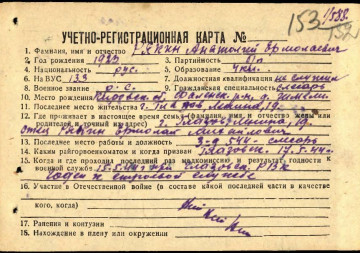 153
1/538
152
УЧЕТНО-РЕГИСТРАЦИОННАЯ КАРТА №
1. Фамилия, имя и отчество Рякин Анатолий Ермолаевич
2. Год рождения 1925 3. Партийность б/п
4. Национальность рус. 5. Образование 4 кл.
6. На ВУС 133 7. Должностная квалификация не служил
8. Военное звание р.с. 9. Гражданская специальность слесарь
10. Место рождения
11. Последнее место жительства г. Ленина, 19
12. Где проживает в настоящее время семья (фамилия, имя и отчество жены или
родителей и точный адрес) г. Ленина, 19
отец Рякин Ермолай Михайлович
13. Последнее место работы и должность слесарь
14. Каким райгорвоенкоматом и когда призван 17.5.44
15. Когда и где проходил последний раз медкомиссию и результат годности к
военной службе 15.5.44 при РВК
годен к строевой службе
16. Участие в Отечественной войне (в составе какой последней части и в качестве
кого, когда) нет
17. Ранения и контузии нет
18. Нахождение в плену или окружении нет